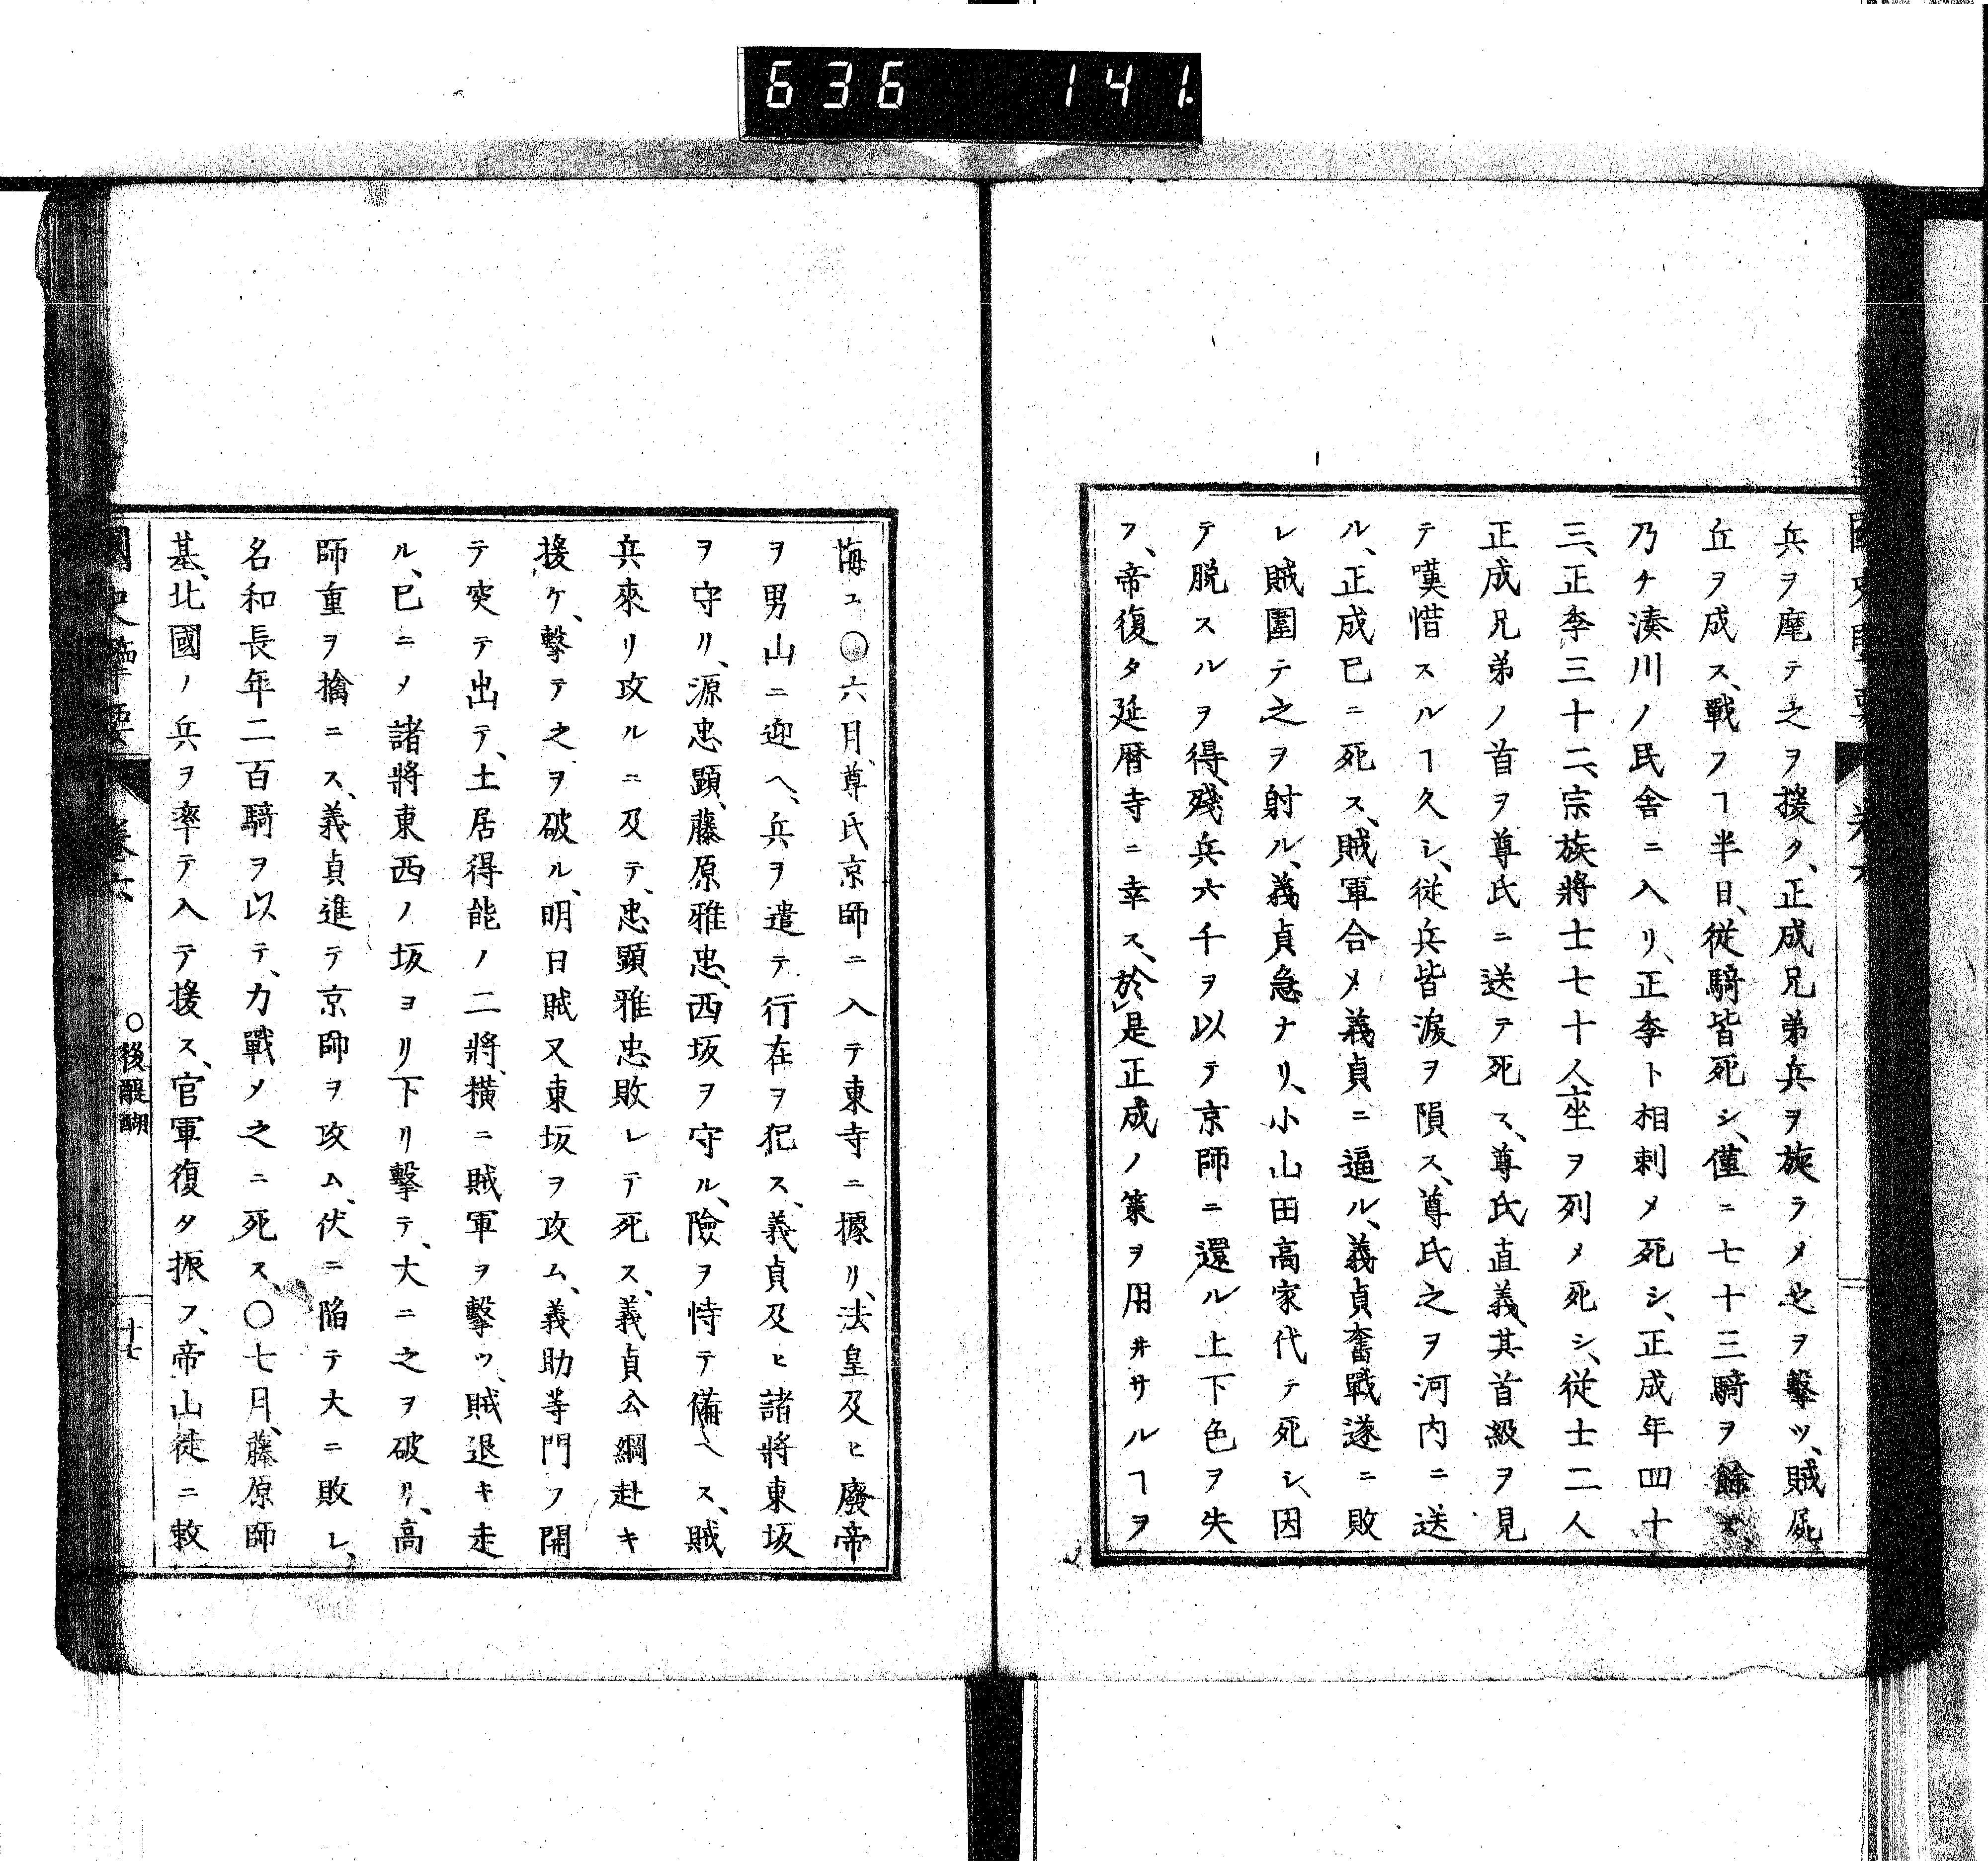 636 141.
兵ヲ麾テ之ヲ援ク、正成兄弟兵ヲ旋ラメ之ヲ撃ツ、賊屍
丘ヲ成ス、戰フヿ半日、從騎皆死シ、僅ニ七十三騎ヲ餘ス
乃チ湊川ノ民舍ニ入リ、正季ト相刺メ死シ、正成年四十
三、正季三十二、宗族將士七十人坐ヲ列メ死シ、從士二人
正成兄弟ノ首ヲ尊氏ニ送テ死ス、尊氏直義其首級ヲ見
テ嘆惜スルヿ久シ、從兵皆淚ヲ隕ス、尊氏之ヲ河内ニ送
ル、正成已ニ死ス、賊軍合メ義貞ニ逼ル、義貞奮戰遂ニ敗
レ賊圍テ之ヲ射ル、義貞急ナリ、小山田高家代テ死シ、因
テ脱スルヲ得、殘兵六千ヲ以テ京師ニ還ル上下色ヲ失
フ、帝復タ延暦寺ニ幸ス、於是正成ノ策ヲ用井サルヿヲ
悔ユ〇六月、尊氏京師ニ入テ東寺ニ據リ、法皇及ヒ廢帝
ヲ男山ニ迎ヘ、兵ヲ遣テ行在ヲ犯ス、義貞及ヒ諸將東坂
ヲ守リ、源忠顯、藤原雅忠、西坂ヲ守ル、險ヲ恃テ備ヘス、賊
兵來リ攻ルニ及テ、忠顯雅忠敗レテ死ス、義貞公綱赴キ
援ケ、撃テ之ヲ破ル、明日賊又東坂ヲ攻ム、義助等門フ開
テ突テ出テ、土居得能ノ二將、橫ニ賊軍ヲ撃ツ、賊退キ走
ル、已ニメ諸將東西ノ坂ヨリ下リ擊テ、大ニ之ヲ破リ、高
師重ヲ擒ニス、義貞進テ京師ヲ攻ム、伏ニ陷テ大ニ敗レ、
名和長年二百騎ヲ以テ、力戰メ之ニ死ス、〇七月、藤原師
基、北國ノ兵ヲ率テ入テ援ス、官軍復タ振フ、帝山徒ニ敕
國史擥要 卷六 〇後醍醐 十七